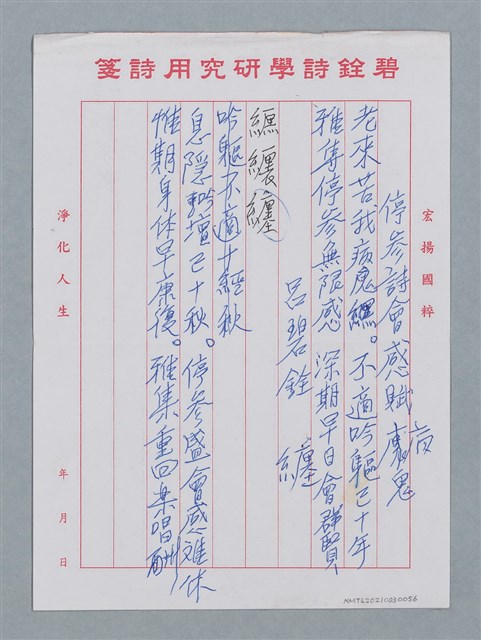 碧銓詩學研究用詩箋
宏揚國粹
停參詩會感賦 病魔鬼
老來苦我病魔纏。不適吟軀已十年
雅集停參無限感 深期早日會群賢
呂碧銓 纏
纏纏纏
吟軀不適廿經秋
息隱吟壇已十秋。停參盛會感難休
惟期身体早康復。雅集重回樂唱酬
淨化人生
年 月 日
NMTL20210230056